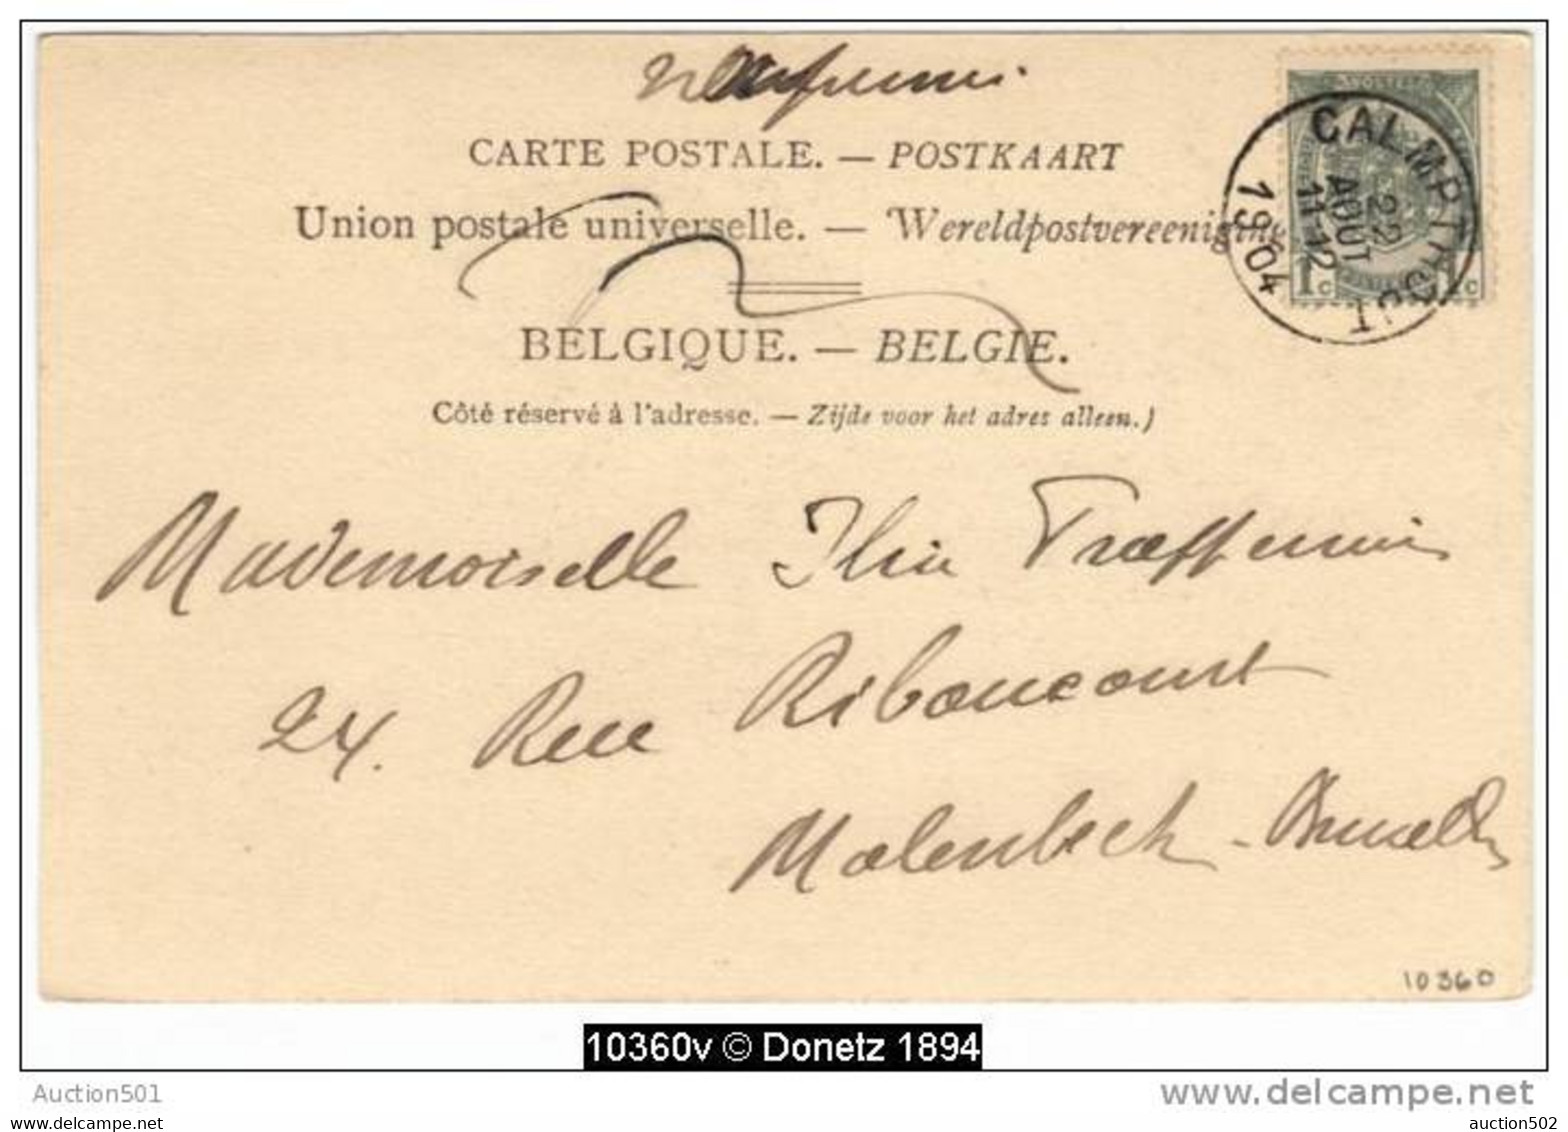 CARTE POSTALE. — POSTKAART
Union postale universelle. — Wereldpostvereeniging
BELGIQUE. — BELGIE.
Côté réservé à l'adresse. — Zijde voor het adres alleen.)
CALMPTHOUT
22
AOUT
11-12
1904
1c
Mademoiselle
24. Rue Ribaucourt
Molenbeck - Bruxelles
10360
10360v © Donetz 1894
Auction501
www.delcampe.net
www.delcampe.net
auction502